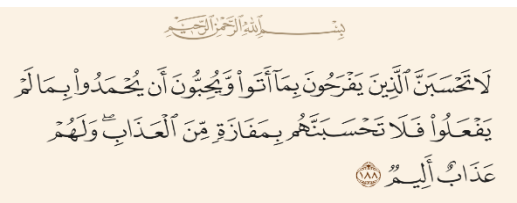 بِسْمِ اللَّهِ الرَّحْمَٰنِ الرَّحِيمِ
لَا تَحْسَبَنَّ ٱلَّذِينَ يَفْرَحُونَ بِمَآ أَتَوا۟ وَّيُحِبُّونَ أَن يُحْمَدُوا۟ بِمَا لَمْ
يَفْعَلُوا۟ فَلَا تَحْسَبَنَّهُم بِمَفَازَةٍ مِّنَ ٱلْعَذَابِ ۖ وَلَهُمْ
عَذَابٌ أَلِيمٌ ١٨٨